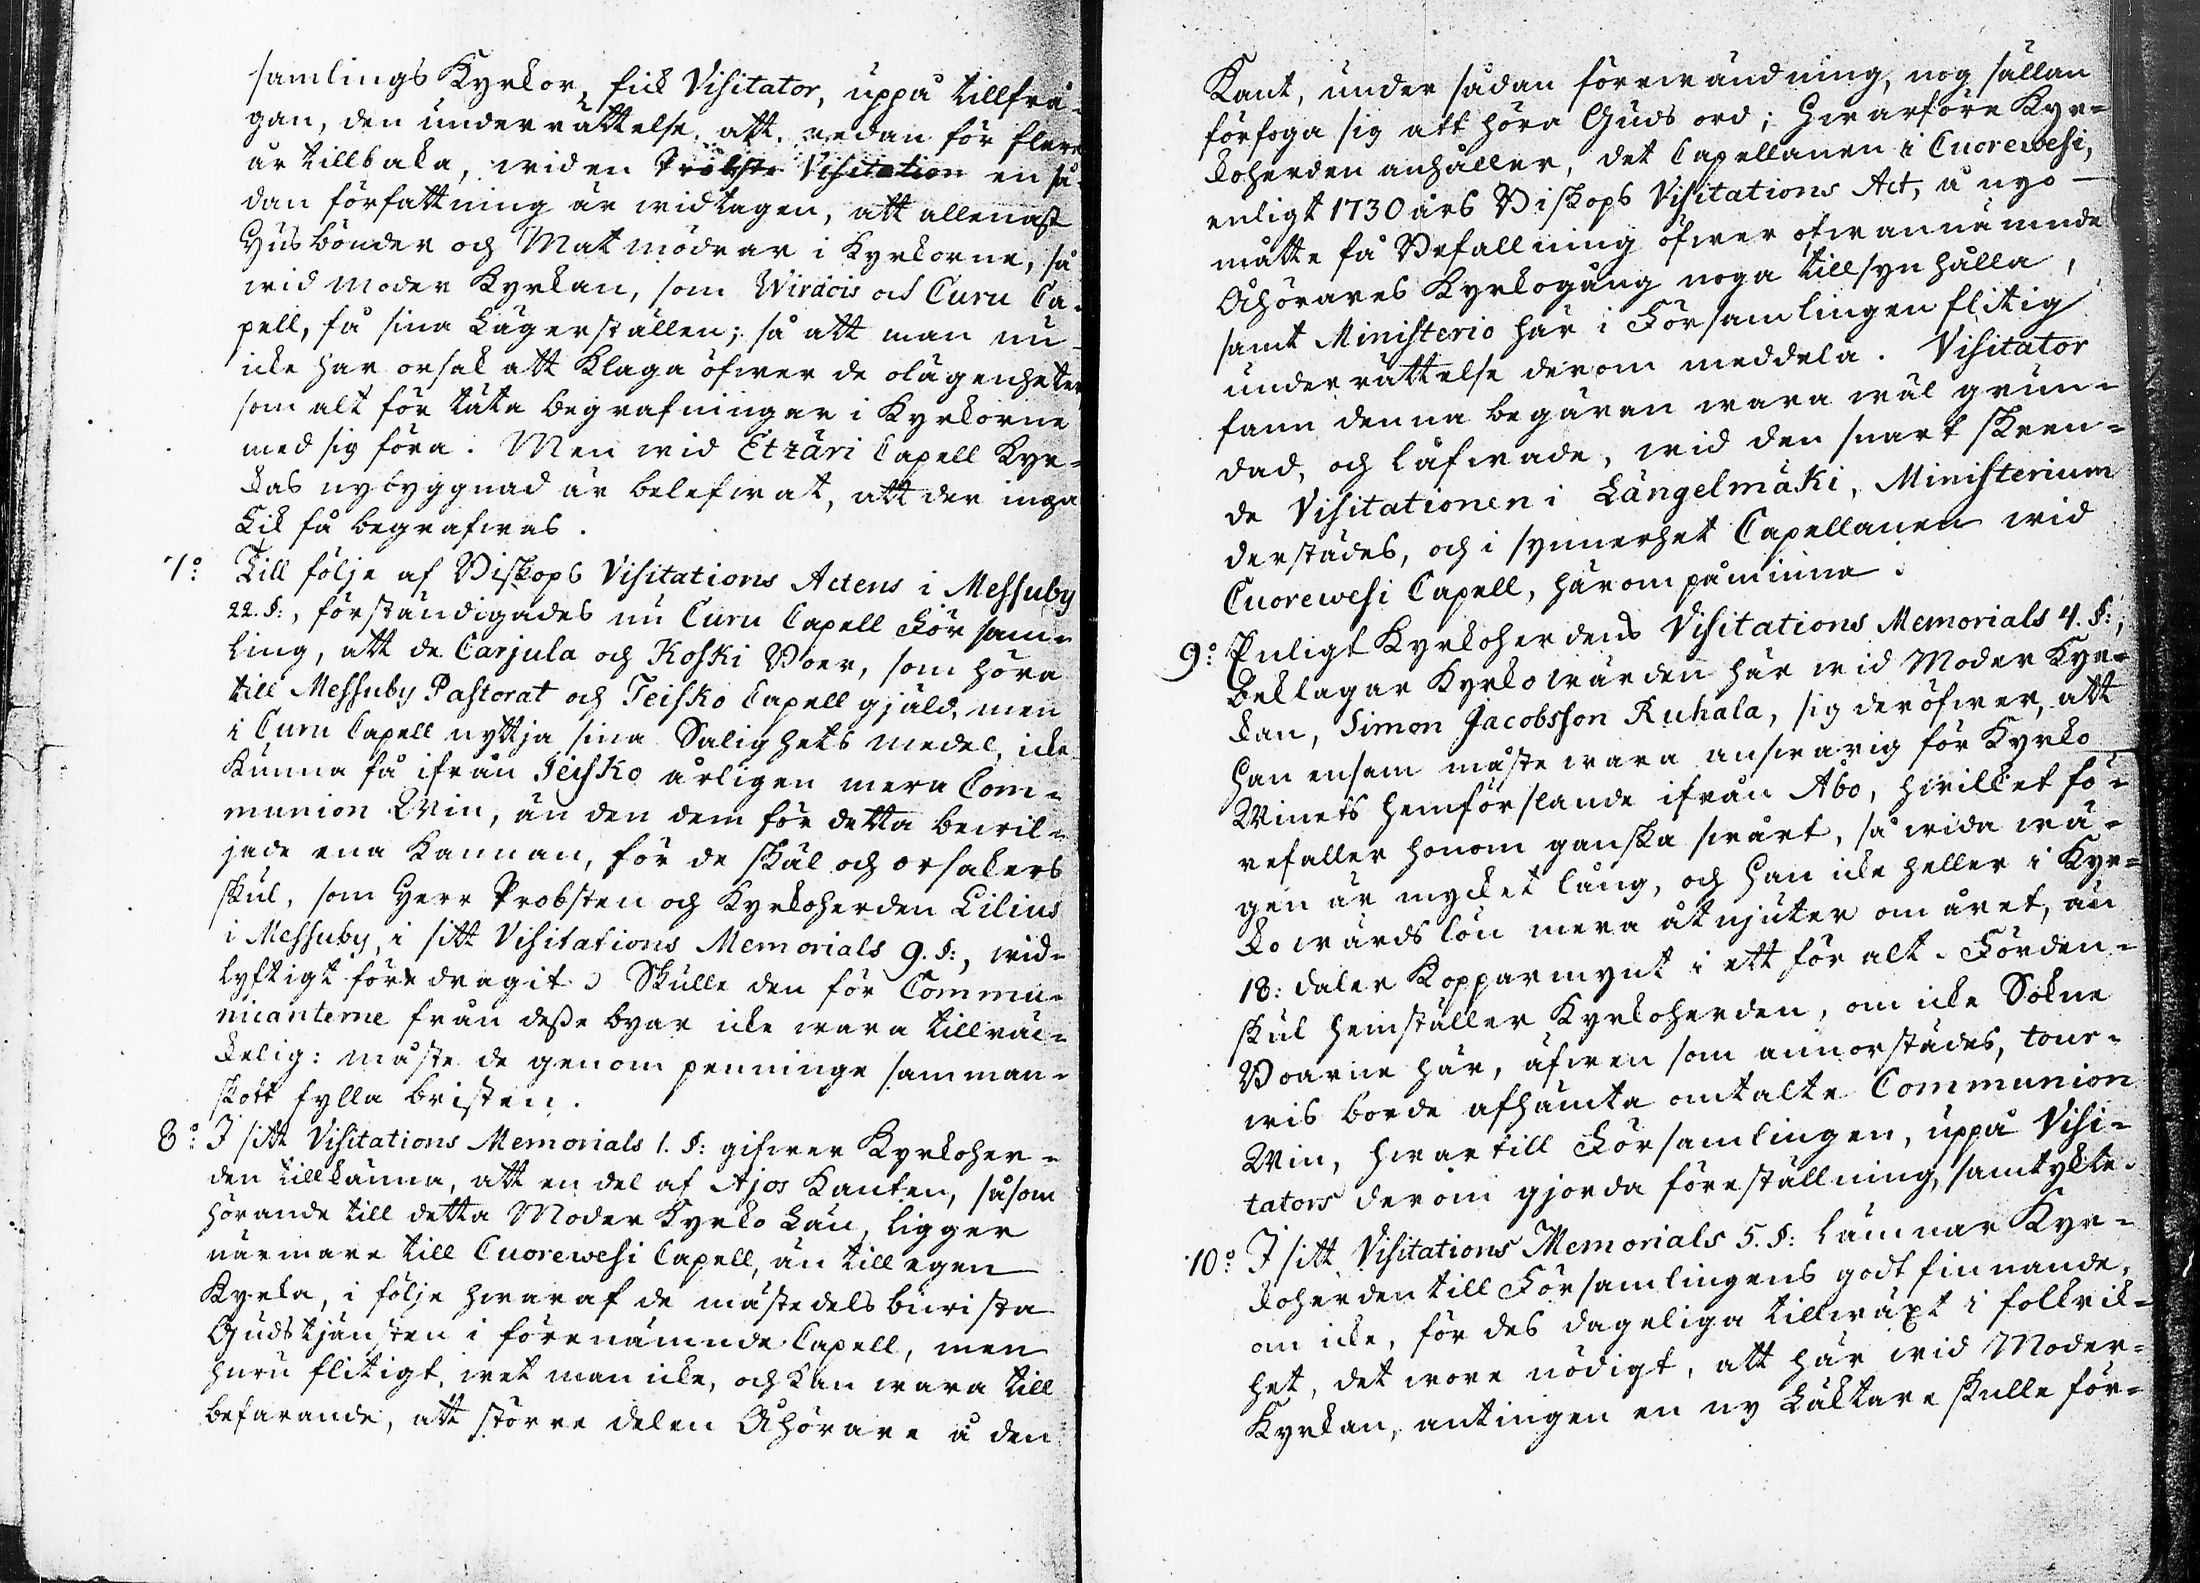 samlings Kyrkor, fick Visitator, uppå tillfrå-
gan, den underrättelse, att, redan för flere
år tillbaka, wid en Probste Visitation en så-
dan författning är widtagen, att allenast
Husbönder och Matmödrar i Kyrkorne, så
wid Moder Kyrkan, som Wirdois och Curu Ca-
pell, få sina Lägerställen; så att man nu
icke har orsak att klaga öfwer de olägenheter
som alt för täta begrafningar i Kyrkorne
med sig föra. Men wid Etzäri Capell Kyr-
kas nybyggnad är belefwat, att der inga
Lik få begrafwas.
7:o Till följe af Biskops Visitations Actens i Messuby
22. §:, förständigades nu Curu Capell Försam-
ling, att de Carjula och Koski Boer, som höra
till Messuby Pastorat och Teisko Capell gjäld, men
i Curu Capell nyttja sina Salighets medel, icke
kunna få ifrån Teisko årligen mera Com-
munion Win, än den dem för detta bewil-
jade ena Kannan, för de skäl och orsakers
skul, som Herr Probsten och Kyrkoherden Lilius
i Messuby, i sitt Visitations Memorials 9. §:, wid-
lyftigt föredragit. Skulle den för Commu-
nicanterne från desse byar icke wara tillräc-
kelig: måste de genom penninge samman-
skott fylla bristen.
8:o I sitt Visitations Memorials 1. §: gifwer Kyrkoher-
den tillkänna, att en del af Ajos Kanten, såsom
hörande till detta Moder Kyrko Län, ligger
närmare till Cuorewesi Capell, än till egen
Kyrka, i följe hwaraf de mästedels biwista
Gudstjänsten i förenämnde Capell, men
huru flitigt, wet man icke, och kan wara till
befarande, att större delen Åhörare å den
Kant, under sådan förewändning, nog sällan
förfoga sig att höra Guds ord; Hwarföre Kyr-
koherden anhåller, det Capellanen i Cuorewesi,
enligt 1730 års Biskops Visitations Act, å nyo
måtte få Befallning öfwer ofwannämnde
Åhörares Kyrkogång noga tillsyn hålla,
samt Ministerio här i Församlingen flitig
underrättelse derom meddela. Visitator
fann denna begäran wara wäl grun-
dad, och låfwade, wid den snart skeen-
de Visitationen i Längelmäki, Ministerium
derstädes, och i synnerhet Capellanen wid
Cuorewesi Capell, härom påminna.
9:o Enligt Kyrkoherdens Visitations Memorials 4. §:,
beklagar Kyrkowärden här wid Moder Kyr-
kan, Simon Jacobsson Ruhala, sig deröfwer, att
han ensam måste wara answarig för Kyrko
Winets hemförslande ifrån Åbo, hwilket fö-
refaller honom ganska swårt, så wida wä-
gen är mycket lång, och han icke heller i Kyr-
kowärds lön mera åtnjuter om året, än
18: daler Kopparmynt i ett för alt. Förden-
skul hemställer Kyrkoherden, om icke Sokne
Boarne här, äfwen som annorstädes, tour-
wis borde afhämta omtalte Communion
Win, hwartill Församlingen, uppå Visi-
tators derom gjorda föreställning, samtykte.
10:o I sitt Visitations Memorials 5. §: lämnar Kyr-
koherden till Församlingens godtfinnande,
om icke, för des dageliga tillwäxt i folkrik-
het, det wore nödigt, att här wid Moder-
Kyrkan, antingen en ny Läktare skulle för-